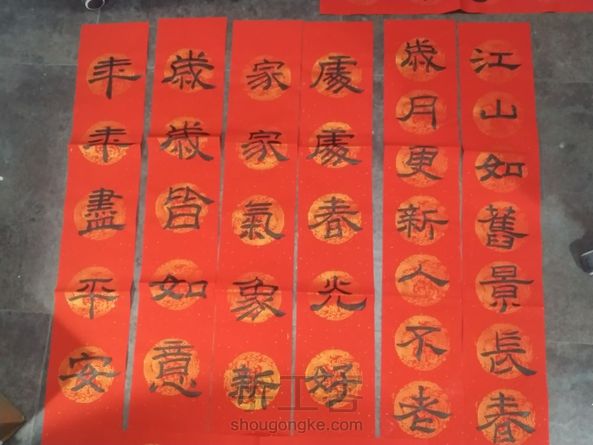 江山如舊景長春
歲月更新人不老
處處春光好
家家氣象新
歲歲皆如意
年年盡平安
手工客
shougongke.com